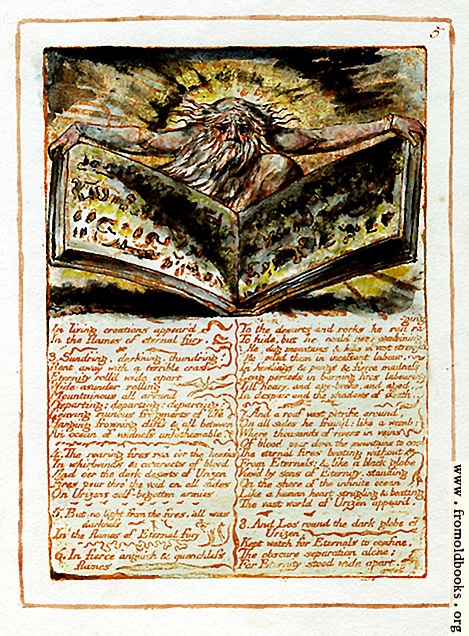 5
In living creations appear'd
In the flames of eternal fury.
3. Sund'ring, dark'ning, thund'ring!
Rent away with a terrible crash
Eternity roll'd wide apart
Wide asunder rolling
Mountainous all around
Departing; departing; departing:
Leaving ruinous fragments of life
Hanging frowning cliffs & all between
An ocean of voidness unfathomable.
4. The roaring fires ran o'er the heav'ns
In whirlwinds & cataracts of blood
And o'er the dark desarts of Urizen
Fires pour thro' the void on all sides
On Urizens self-begotten armies
5. But no light from the fires. all was
darkness
In the flames of Eternal fury
6. In fierce anguish & quenchless
flames
ging
To the desarts and rocks he ran ra
To hide, but he could not: combining
He dug mountains & hills in vast strength,
He piled them in incessant labour,
In howlings & pangs & fierce madness
Long periods in burning fires labouring
Till hoary, and age-broke, and aged,
In despair and the shadows of death.
7. And a roof vast petrific around
On all sides he fram'd: like a womb;
Where thousands of rivers in veins
Of blood pour down the mountains to cool
The eternal fires beating without
From Eternals; & like a black globe
View'd by sons of Eternity, standing
On the shore of the infinite ocean
Like a human heart strugling & beating
The vast world of Urizen appear'd.
8. And Los round the dark globe of
Urizen
Kept watch for Eternals to confine,
The obscure separation alone;
For Eternity stood wide apart,
www.fromoldbooks.org